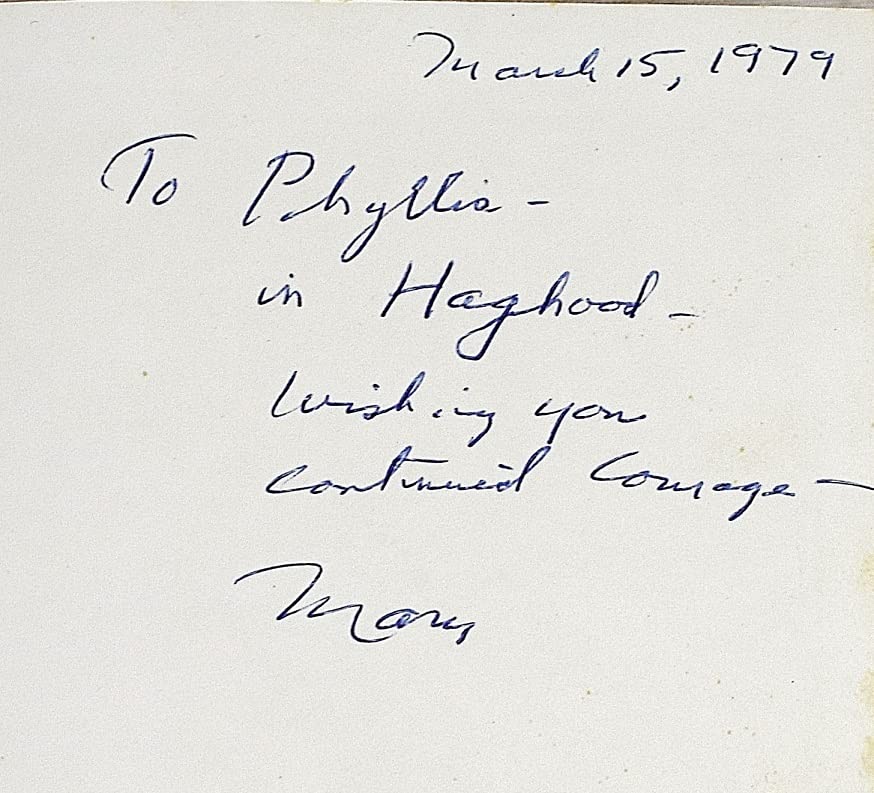 March 15, 1979
To Phyllis -
in Haghood -
Wishing you
continued Courage -
Mary